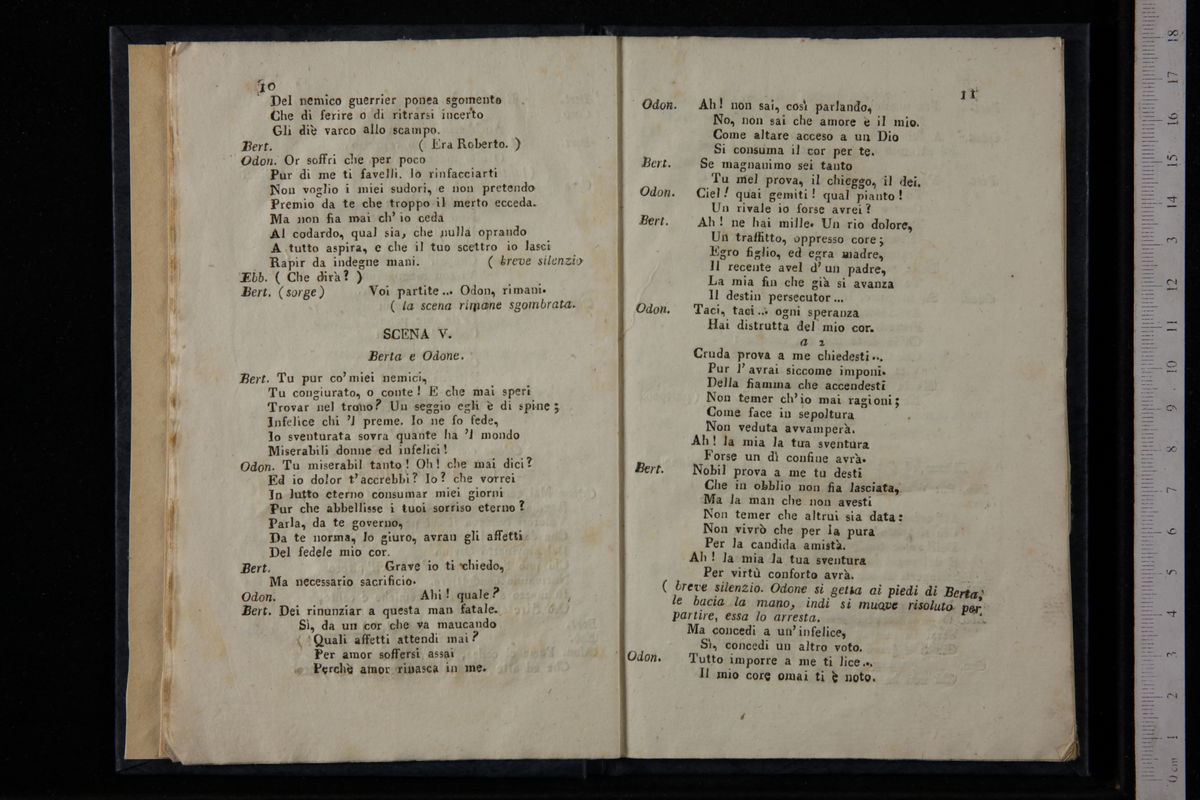 10
Del nemico guerrier ponea sgomento
Che di ferire o di ritrarsi incerto
Gli diè varco allo scampo.
Bert. ( Era Roberto. )
Odon. Or soffri che per poco
Pur di me ti favelli. Io rinfacciarti
Non voglio i miei sudori, e non pretendo
Premio da te che troppo il merto ecceda.
Ma non fia mai ch' io ceda
Al codardo, qual sia, che nulla oprando
A tutto aspira, e che il tuo scettro io lasci
Rapir da indegne mani. ( breve silenzio
Ebb. ( Che dirà? )
Bert. (sorge) Voi partite... Odon, rimani.
( la scena rimane sgombrata.
SCENA V.
Berta e Odone.
Bert. Tu pur co' miei nemici,
Tu congiurato, o conte! E che mai speri
Trovar nel trono? Un seggio egli è di spine;
Infelice chi 'l preme. Io ne fo fede,
Io sventurata sovra quante ha 'l mondo
Miserabili donne ed infelici!
Odon. Tu miserabil tanto! Oh! che mai dici?
Ed io dolor t' accrebbi? Io? che vorrei
In lutto eterno consumar miei giorni
Pur che abbellisse i tuoi sorriso eterno?
Parla, da te governo,
Da te norma, lo giuro, avran gli affetti
Del fedele mio cor.
Bert. Grave io ti chiedo,
Ma necessario sacrificio.
Odon. Ahi! quale?
Bert. Dei rinunziar a questa man fatale.
Sì, da un cor che va maucando
Quali affetti attendi mai?
Per amor soffersi assai
Perchè amor rinasca in me.
11
Odon. Ah! non sai, così parlando,
No, non sai che amore è il mio.
Come altare acceso a un Dio
Si consuma il cor per te.
Bert. Se magnanimo sei tanto
Tu mel prova, il chieggo, il dei.
Odon. Ciel! quai gemiti! qual pianto!
Un rivale io forse avrei?
Bert. Ah! ne hai mille. Un rio dolore,
Un traffitto, oppresso core;
Egro figlio, ed egra madre,
Il recente avel d' un padre,
La mia fin che già si avanza
Il destin persecutor...
Odon. Taci, taci... ogni speranza
Hai distrutta del mio cor.
a 2
Cruda prova a me chiedesti...
Pur l' avrai siccome imponi.
Della fiamma che accendesti
Non temer ch' io mai ragioni;
Come face in sepoltura
Non veduta avvamperà.
Ah! la mia la tua sventura
Forse un dì confine avrà.
Bert. Nobil prova a me tu desti
Che in obblio non fia lasciata,
Ma la man che non avesti
Non temer che altrui sia data:
Non vivrò che per la pura
Per la candida amistà.
Ah! la mia la tua sventura
Per virtù conforto avrà.
( breve silenzio. Odone si getta ai piedi di Berta,
le bacia la mano, indi si muove risoluto per
partire, essa lo arresta.
Ma concedi a un' infelice,
Sì, concedi un altro voto.
Odon. Tutto imporre a me ti lice...
Il mio core omai ti è noto.
0 cm 1 2 3 4 5 6 7 8 9 10 11 12 13 14 15 16 17 18